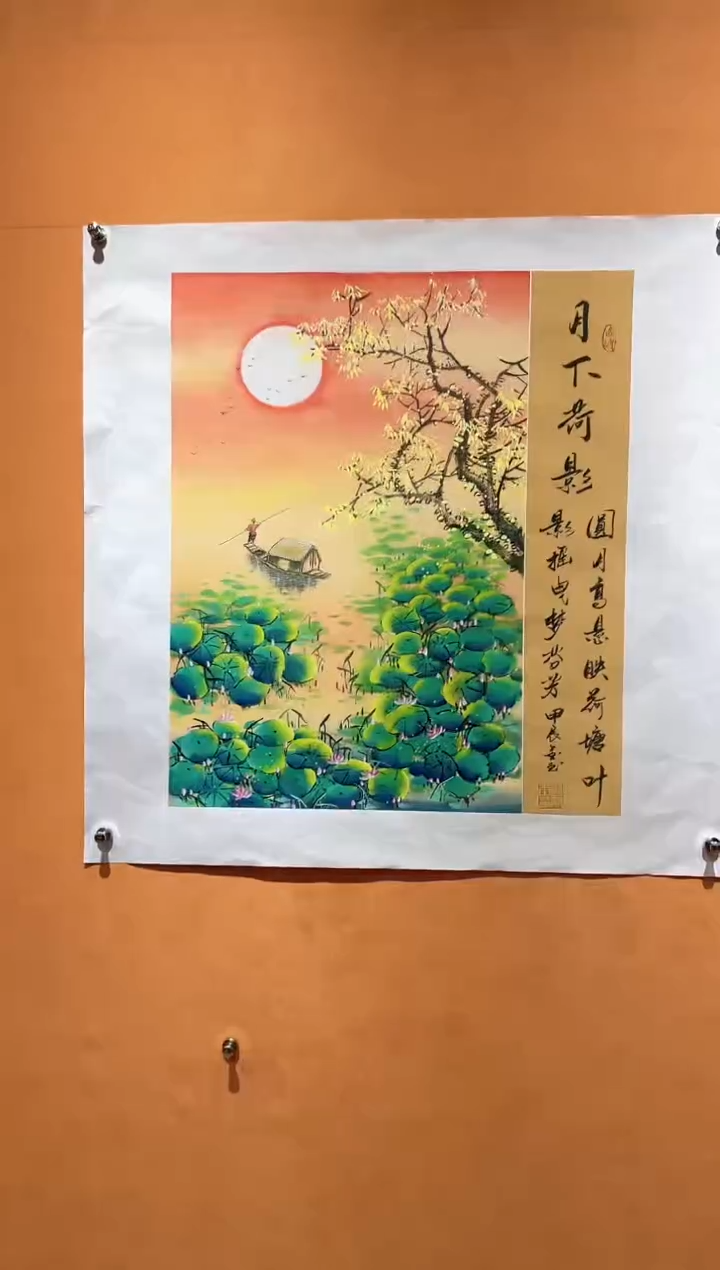 月下荷影
圆月高悬映荷塘叶
影摇曳梦芬芳 甲辰